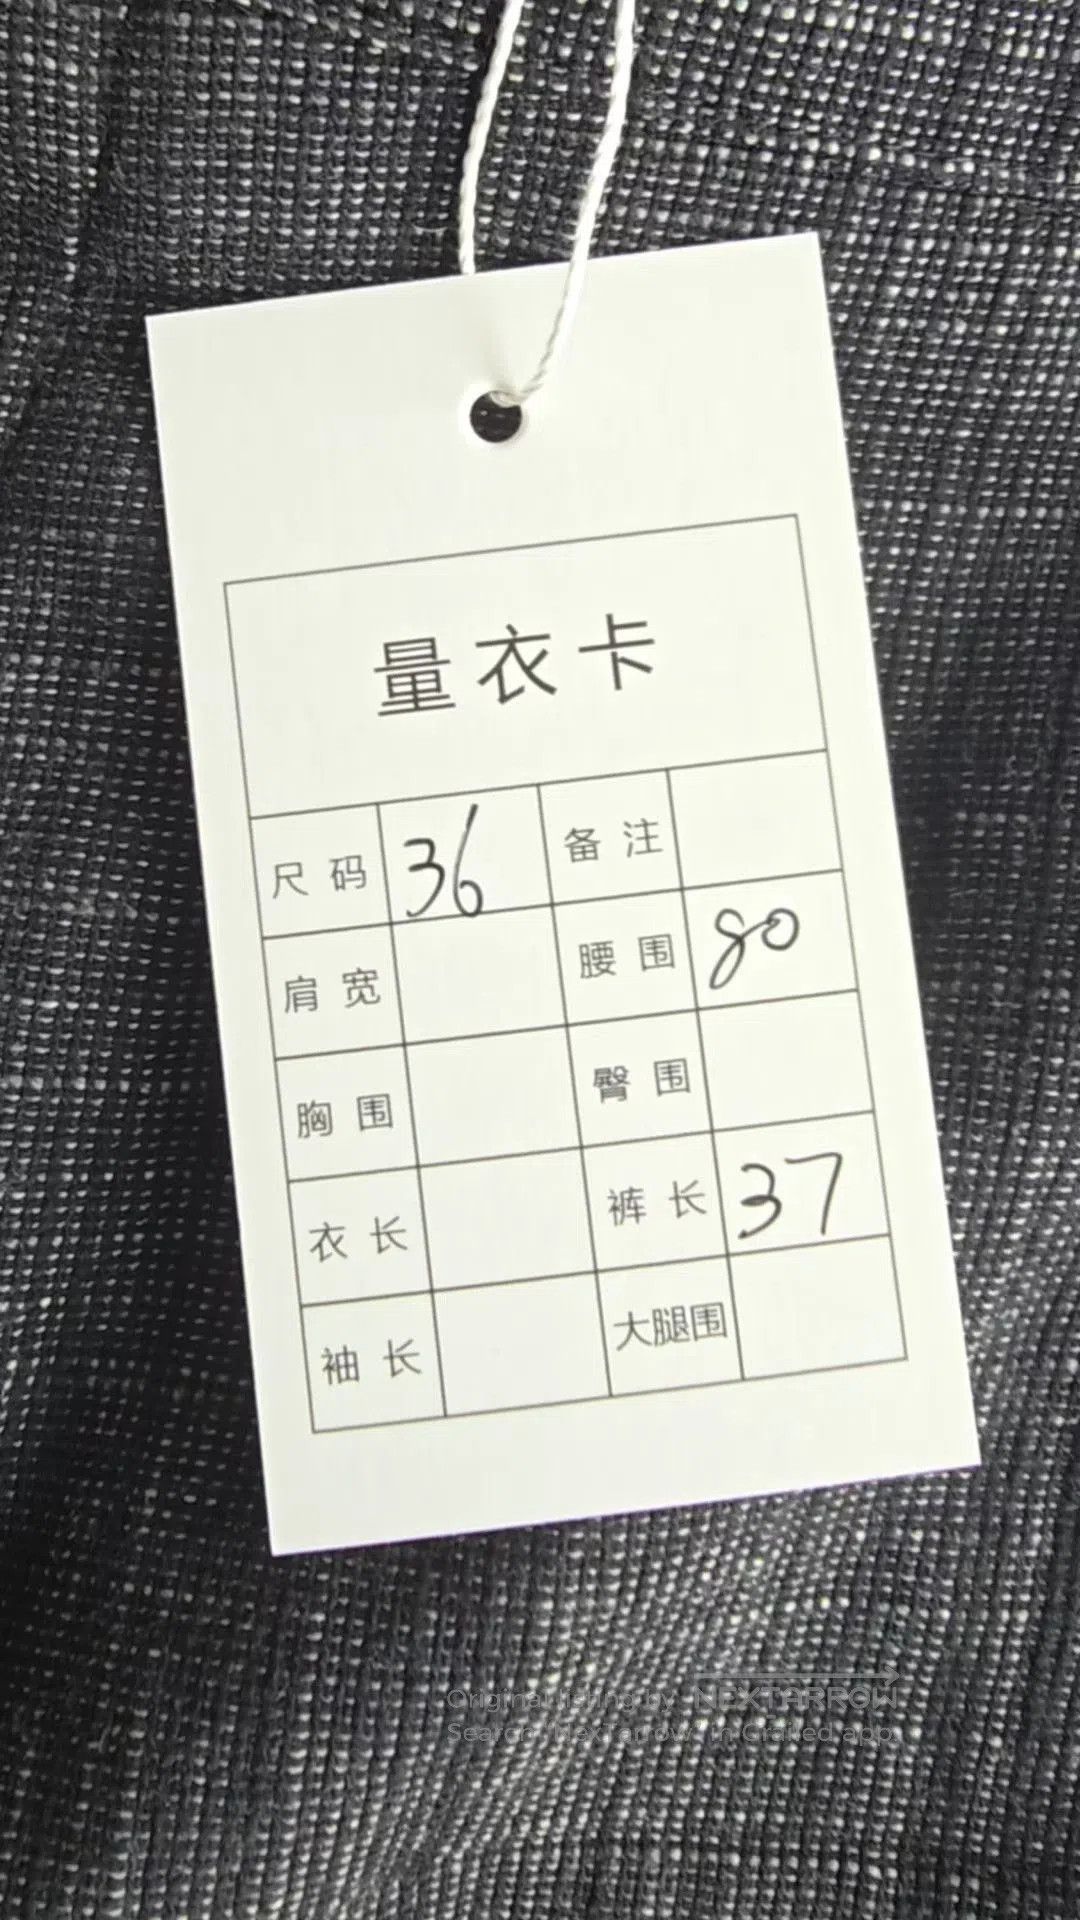 量衣卡
尺码 36 备注
肩宽 腰围 80
胸围 臀围
衣长 裤长 37
袖长 大腿围
Original listing by NEXTARROW
Search "NexTarrow" in Grailed app.